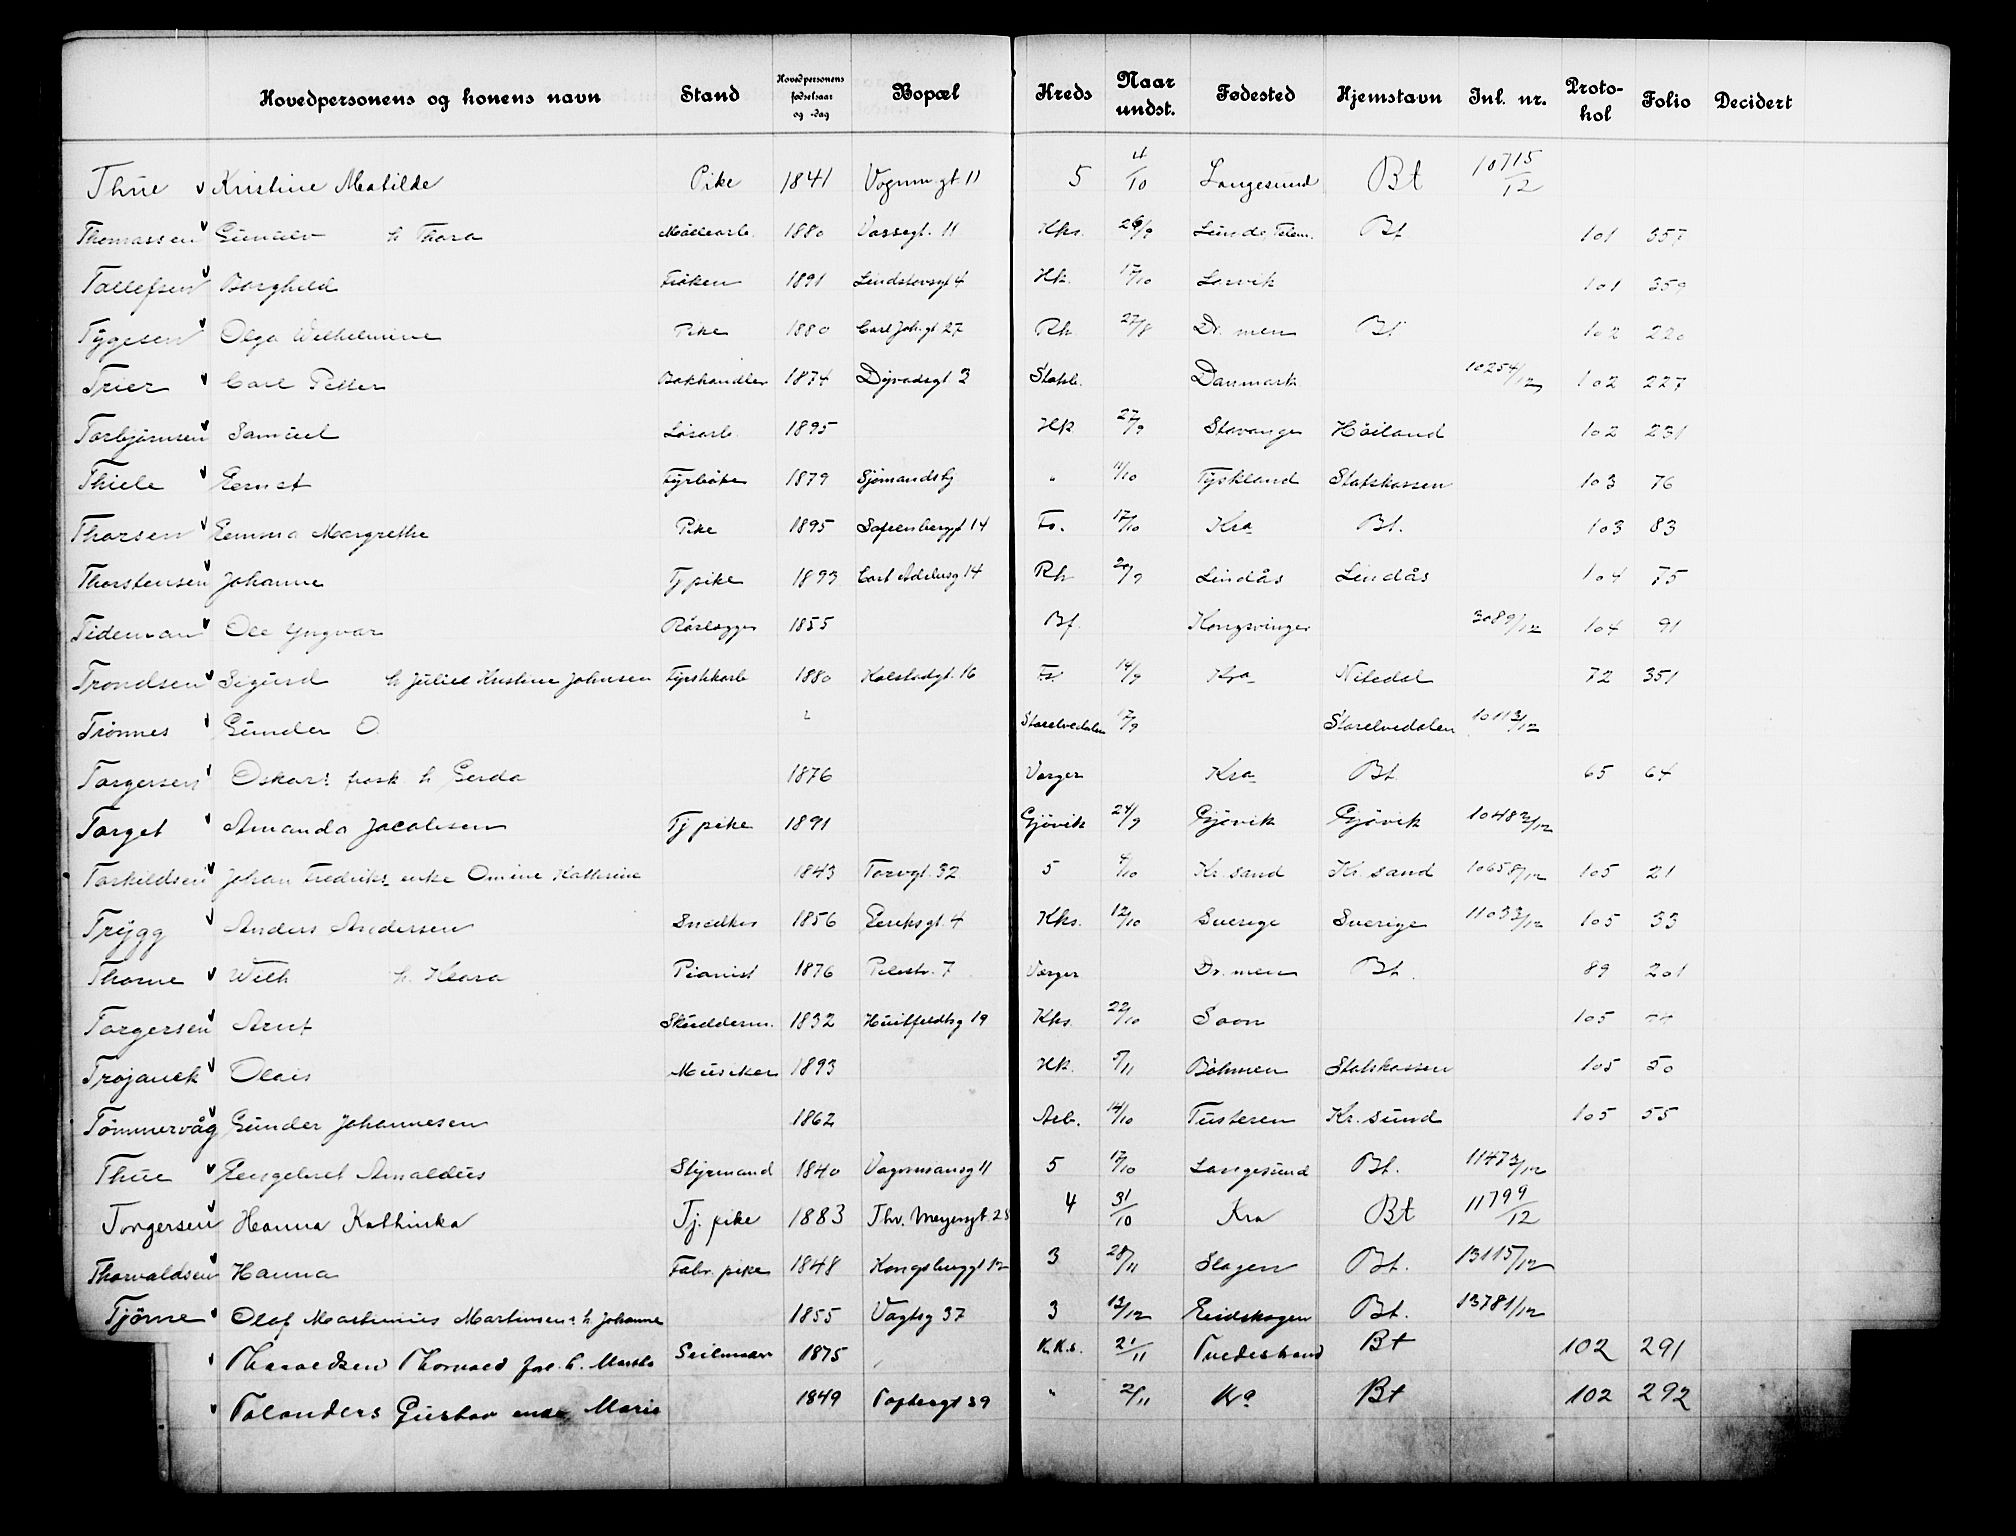 Hovedpersonens og konens navn Stand Hovedpersonens fødselsaar og -dag Bopæl Kreds Naar undst. Fødested Hjemstavn Inl. nr. Proto-kol Folio Decidert
Thue Kristine Matilde Pike 1841 Vognm.gt. 11 5 4/10 Langesund Bt 10715/12
Thomassen h. Thora 1880 Vossegt. 11 Kks. 26/9 Lunde, Telem. Bt 101 357
Tallefsen Borghild Frøken 1891 Lindstowsgt 4 Hk. 17/10 Larvik 101 359
Tygesen Olga Wilhelmine Pike 1880 Carl Joh.gt 27 Rh. 27/8 Dr.men Bt 102 220
Trier Carl Petter Bokhandler 1874 Dyvadsgt 2 Stabb. Danmark 10254/12 102 227
Torbjørnsen Samuel Løsarb. 1895 Hk 27/9 Stavanger Høiland 102 231
Thiele Ernst Fyrbøter 1879 Sjømandshj " 11/10 Tyskland Statskassen 103 76
Thorsen Emma Margrethe Pike 1895 Sofienberggt 14 Fs. 17/10 Kra Bt. 103 83
Thorstensen Johanne Tj pike 1893 Cort Adelersg 14 Rh 20/9 Lindås Lindås 104 75
Tideman Ole Yngvar Rørlegger 1855 Bf. Kongsvinger 3089/12 104 91
Trondsen Sigurd h. Julie Kristine Johnsen Fyrstikkarb 1880 Kalstadgt. 16 Fs. 14/9 Kra Nitedal 72 351
Trønnes Gunder O. Storelvedalen 17/9 Storelvedalen 10113/12
Torgersen Oskar: frask. h. Gerda 1876 Værger Kra Bt. 65 64
Torget Amanda Jacobsen Tj pike 1891 Gjøvik 24/9 Gjøvik Gjøvik 10482/12
Torkildsen Johan Fredriks enke Omine Kathrine 1843 Torvgt. 32 5 4/10 Kr. sand Kr. sand 10658/12 105 21
Trygg Anders Andersen Snedker 1856 Eeriksgt. 4 Kks. 12/10 Sverige Sverige 11033/12 105 33
Thorne Wilh h. Klara Pianist 1876 Pilestr. 7 Værger Dr. men Bt. 89 201
Torgersen Arnt Skredderm. 1832 Huitfeldtsg 19 Kks. 22/10 Soon 105
Trojanek Olais Musiker 1893 Hk. 5/11 Bøhmen Statskassen 105 50
Tømmervåg Gunder Johannesen 1862 Arb. 14/10 Tusteren Kr. sund 105 55
Thue Engebret Arnaldus Styrmand 1840 Vognmansg 11 5 17/10 Langesund Bt. 11473/12
Torgersen Hanna Kathinka Tj. pike 1883 Thv. Meyersgt 25 4 31/10 Kra Bt 11799/12
Thorvaldsen Hanna Fabr. pike 1848 Kongsberggt 12 3 28/11 Slagen Bt. 13115/12
Tjørne Olaf Martinius Martinsen: h. Johanne 1855 Vagtsg 37 3 13/12 Eidskogen Bt. 13781/12
Tharaldsen Thorvald fra. h. Martha Seilmaker 1875 " K.K.s. 21/11 Tvedestrand Bt 102 291
Talanders Gustav enke Marie 1849 Tofbergt 39 " 2/11 Kra Bt 102 292